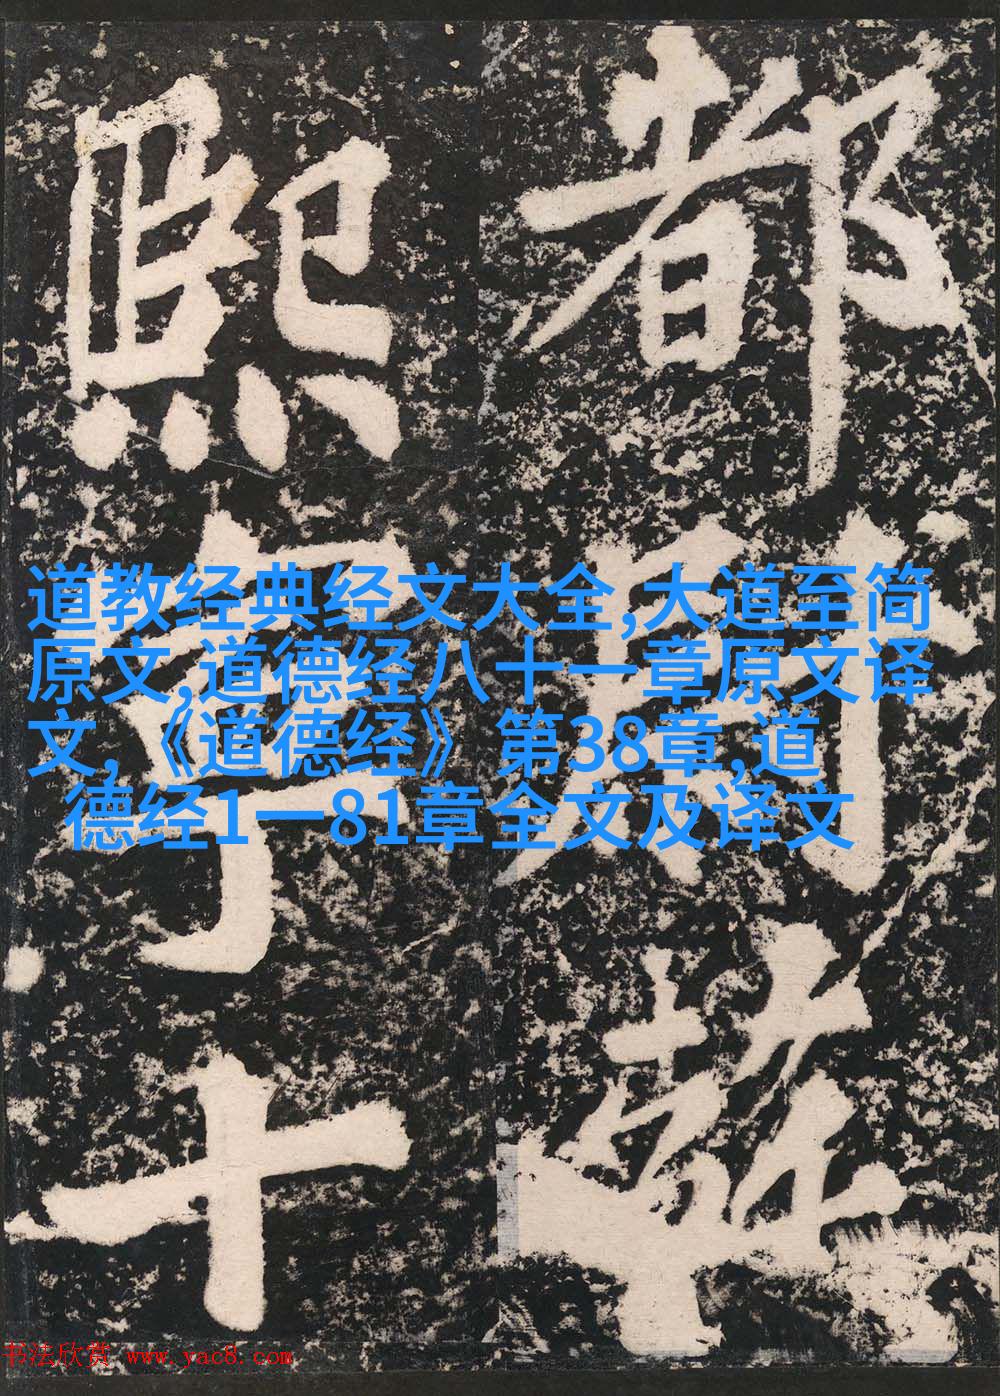 都
周
熙
寧
十
道教经典经文大全,大道至简
原文,道德经八十一章原文译
文,《道德经》第38章,道
德经1一81章全文及译文
书法欣赏 www.yac8.com